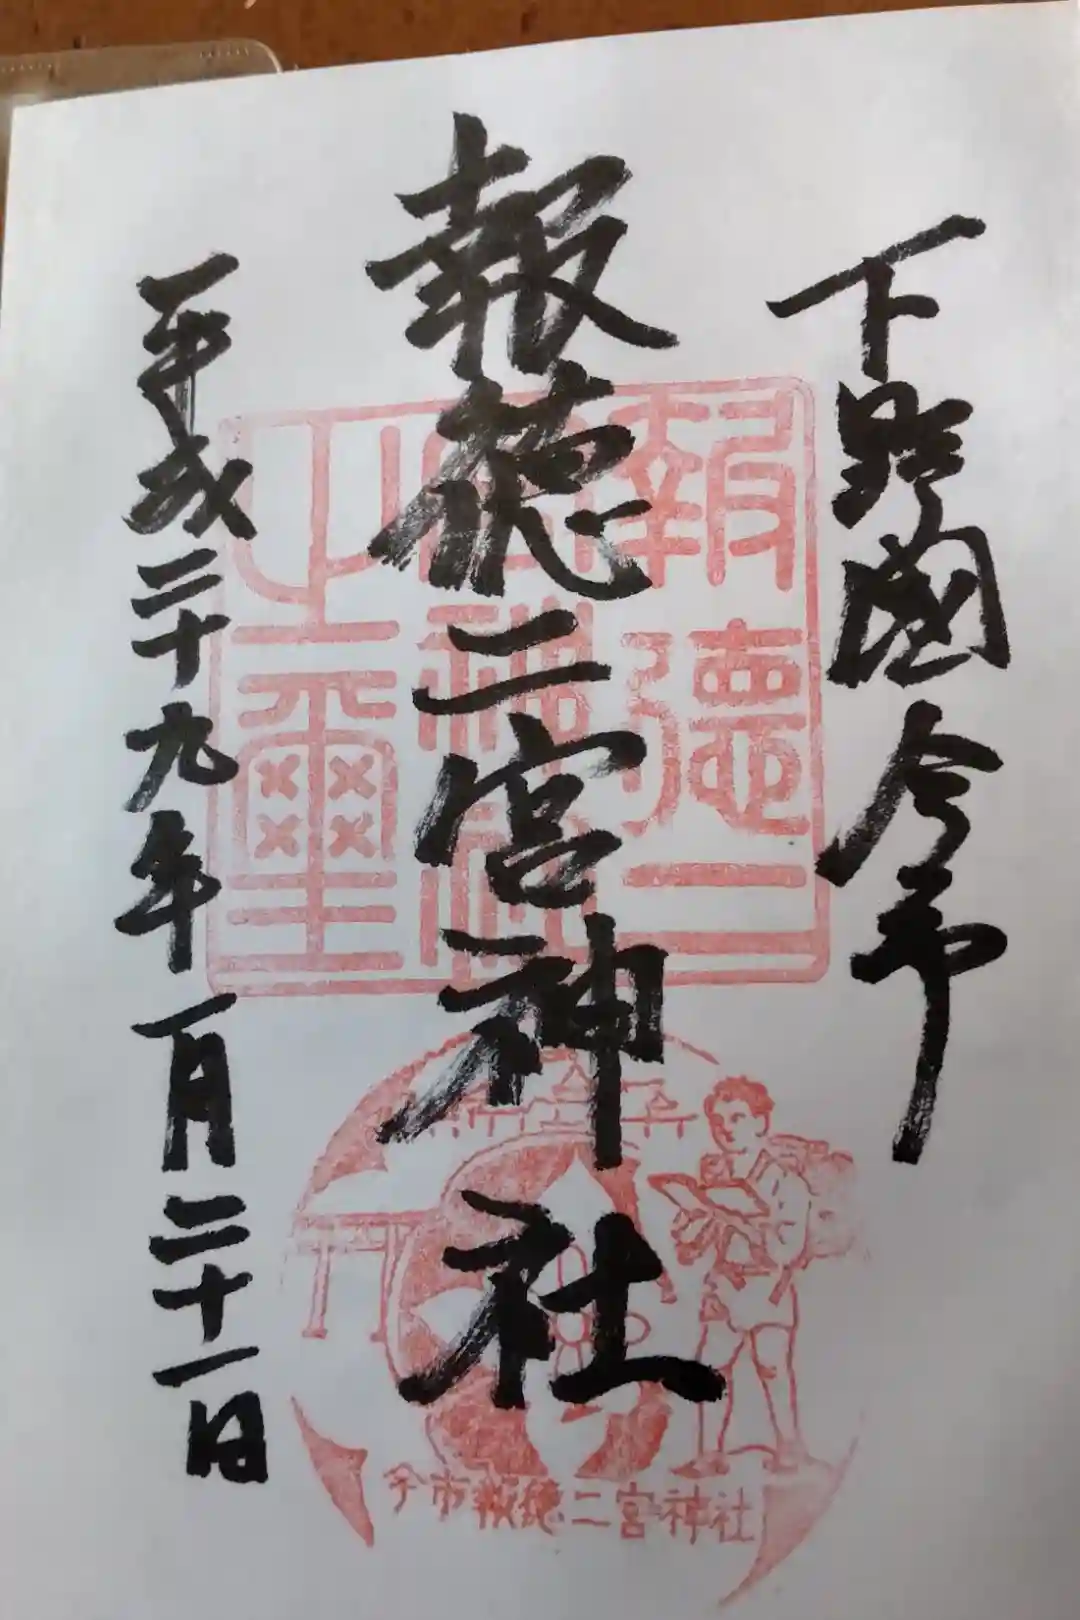 下野國今市
報徳二宮神社
平成二十九年一月二十一日
報德二
宮神社
之璽
今市報徳二宮神社